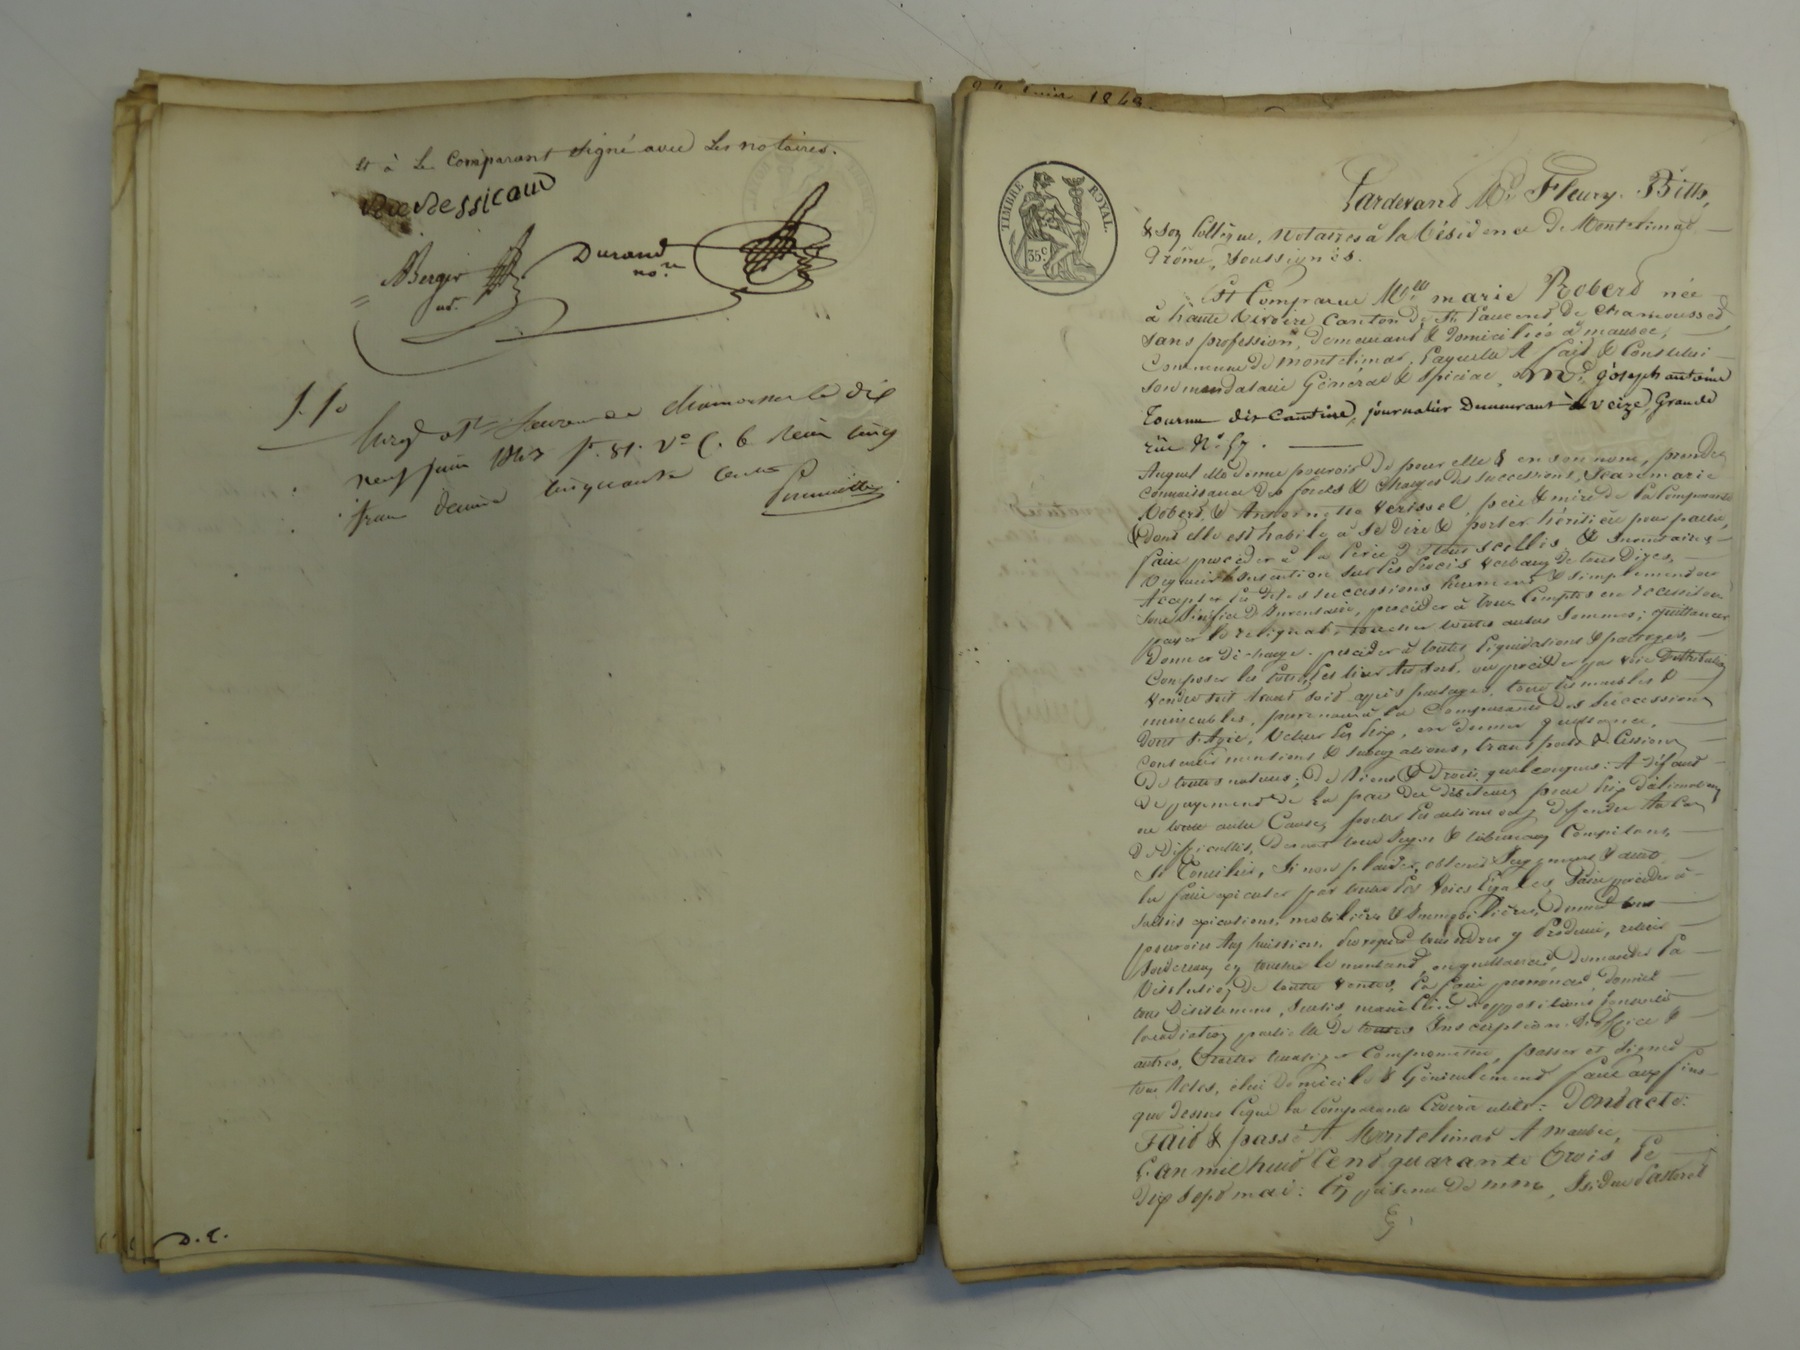 et à le Comparant signé avec les notaires.
Dessicaud
Berger
nre.
Durand
no.re
Enregt. St Laurent de chamousset le dix
neuf juin 1843 fo. 81. Vo C. 6 Reçu cinq
francs décime cinquante centes
D. C.
juin 1843.
TIMBRE ROYAL
35c
Pardevant Me Fleury Bitte,
& son Collègue, Notaires à la Résidence De Montelimar
Drôme, soussignés.
Est Comparue Melle marie Roberd née
à haute Rivoire Canton de St Laurent de Chamousset,
sans profession, demeurant & domiciliée à maubec,
Commune de montelimar, Laquelle A fait & Constitué
son mandataire Général & spécial, Mr. joseph antoine
journalier Demeurant à veize, Grande
rue No. 57.
Auquel elle donne pouvoir de pour elle & en son nom, prendre
Connaissance des forces & Charges des successions, de jean marie
Roberd & Antoinette Verissel, père & mère de la Comparante
Dont elle est habile à se Dire & porter héritière pour partie,
faire procéder à la levée de tous scellés & Inventaires,
sur les procès verbaux de tous Dires,
Accepter les dites successions purement & simplement ou
sous Bénéfice D'Inventaire, procéder à tous Comptes en recevoir ou
payer le reliquat, toucher toutes autres sommes, quittancer
Donner décharge. procéder à toutes liquidations & partages,
Composer les lots, les tirer Au sort, ou procéder par voie D'attribution
Vendre soit avant soit après partages, tous les meubles &
immeubles, provenus à la Comparante Des successions
Dont S'agit, toucher les prix, en donner quittance,
Consentir mentions & subrogations, transports & Cessions
De toutes natures, de biens & Droits quelconques: A défaut
De payement de la part des débiteurs pour prix d'aliénations
ou toute autre Cause, porter les actions ou y défendre Au Cas
De Difficultés, Devant tous Juges & tribunaux Compétans,
Se Concilier, Si non plaider, obtenir Jugemens & arrêts
les faire exécuter par toutes les Voies légales, faire procéder à
saisies exécutions, mobilières & Immobilières, Donner tous
pouvoirs Aux huissiers, ouvrir tous ordres y Produire, retirer
bordereaux en toucher le montant, en quittancer, Demander la
Résolution de toutes Ventes, la faire prononcer, donner
tous Désistemens, Sursis, main levée D'oppositions, Consentir
la radiation partielle De toutes Inscriptions D'office &
autres, traiter transiger Compromettre, passer et signer
tous Actes, élire Domicile & Généralement faire aux fins
que Dessus ce que la Comparante Croira utile: Dont acte:
Fait & passé A Montelimar A maubec,
L'an mil huit Cent quarante trois le
dix sept mai: En présence De mm. Isidore Pastoret